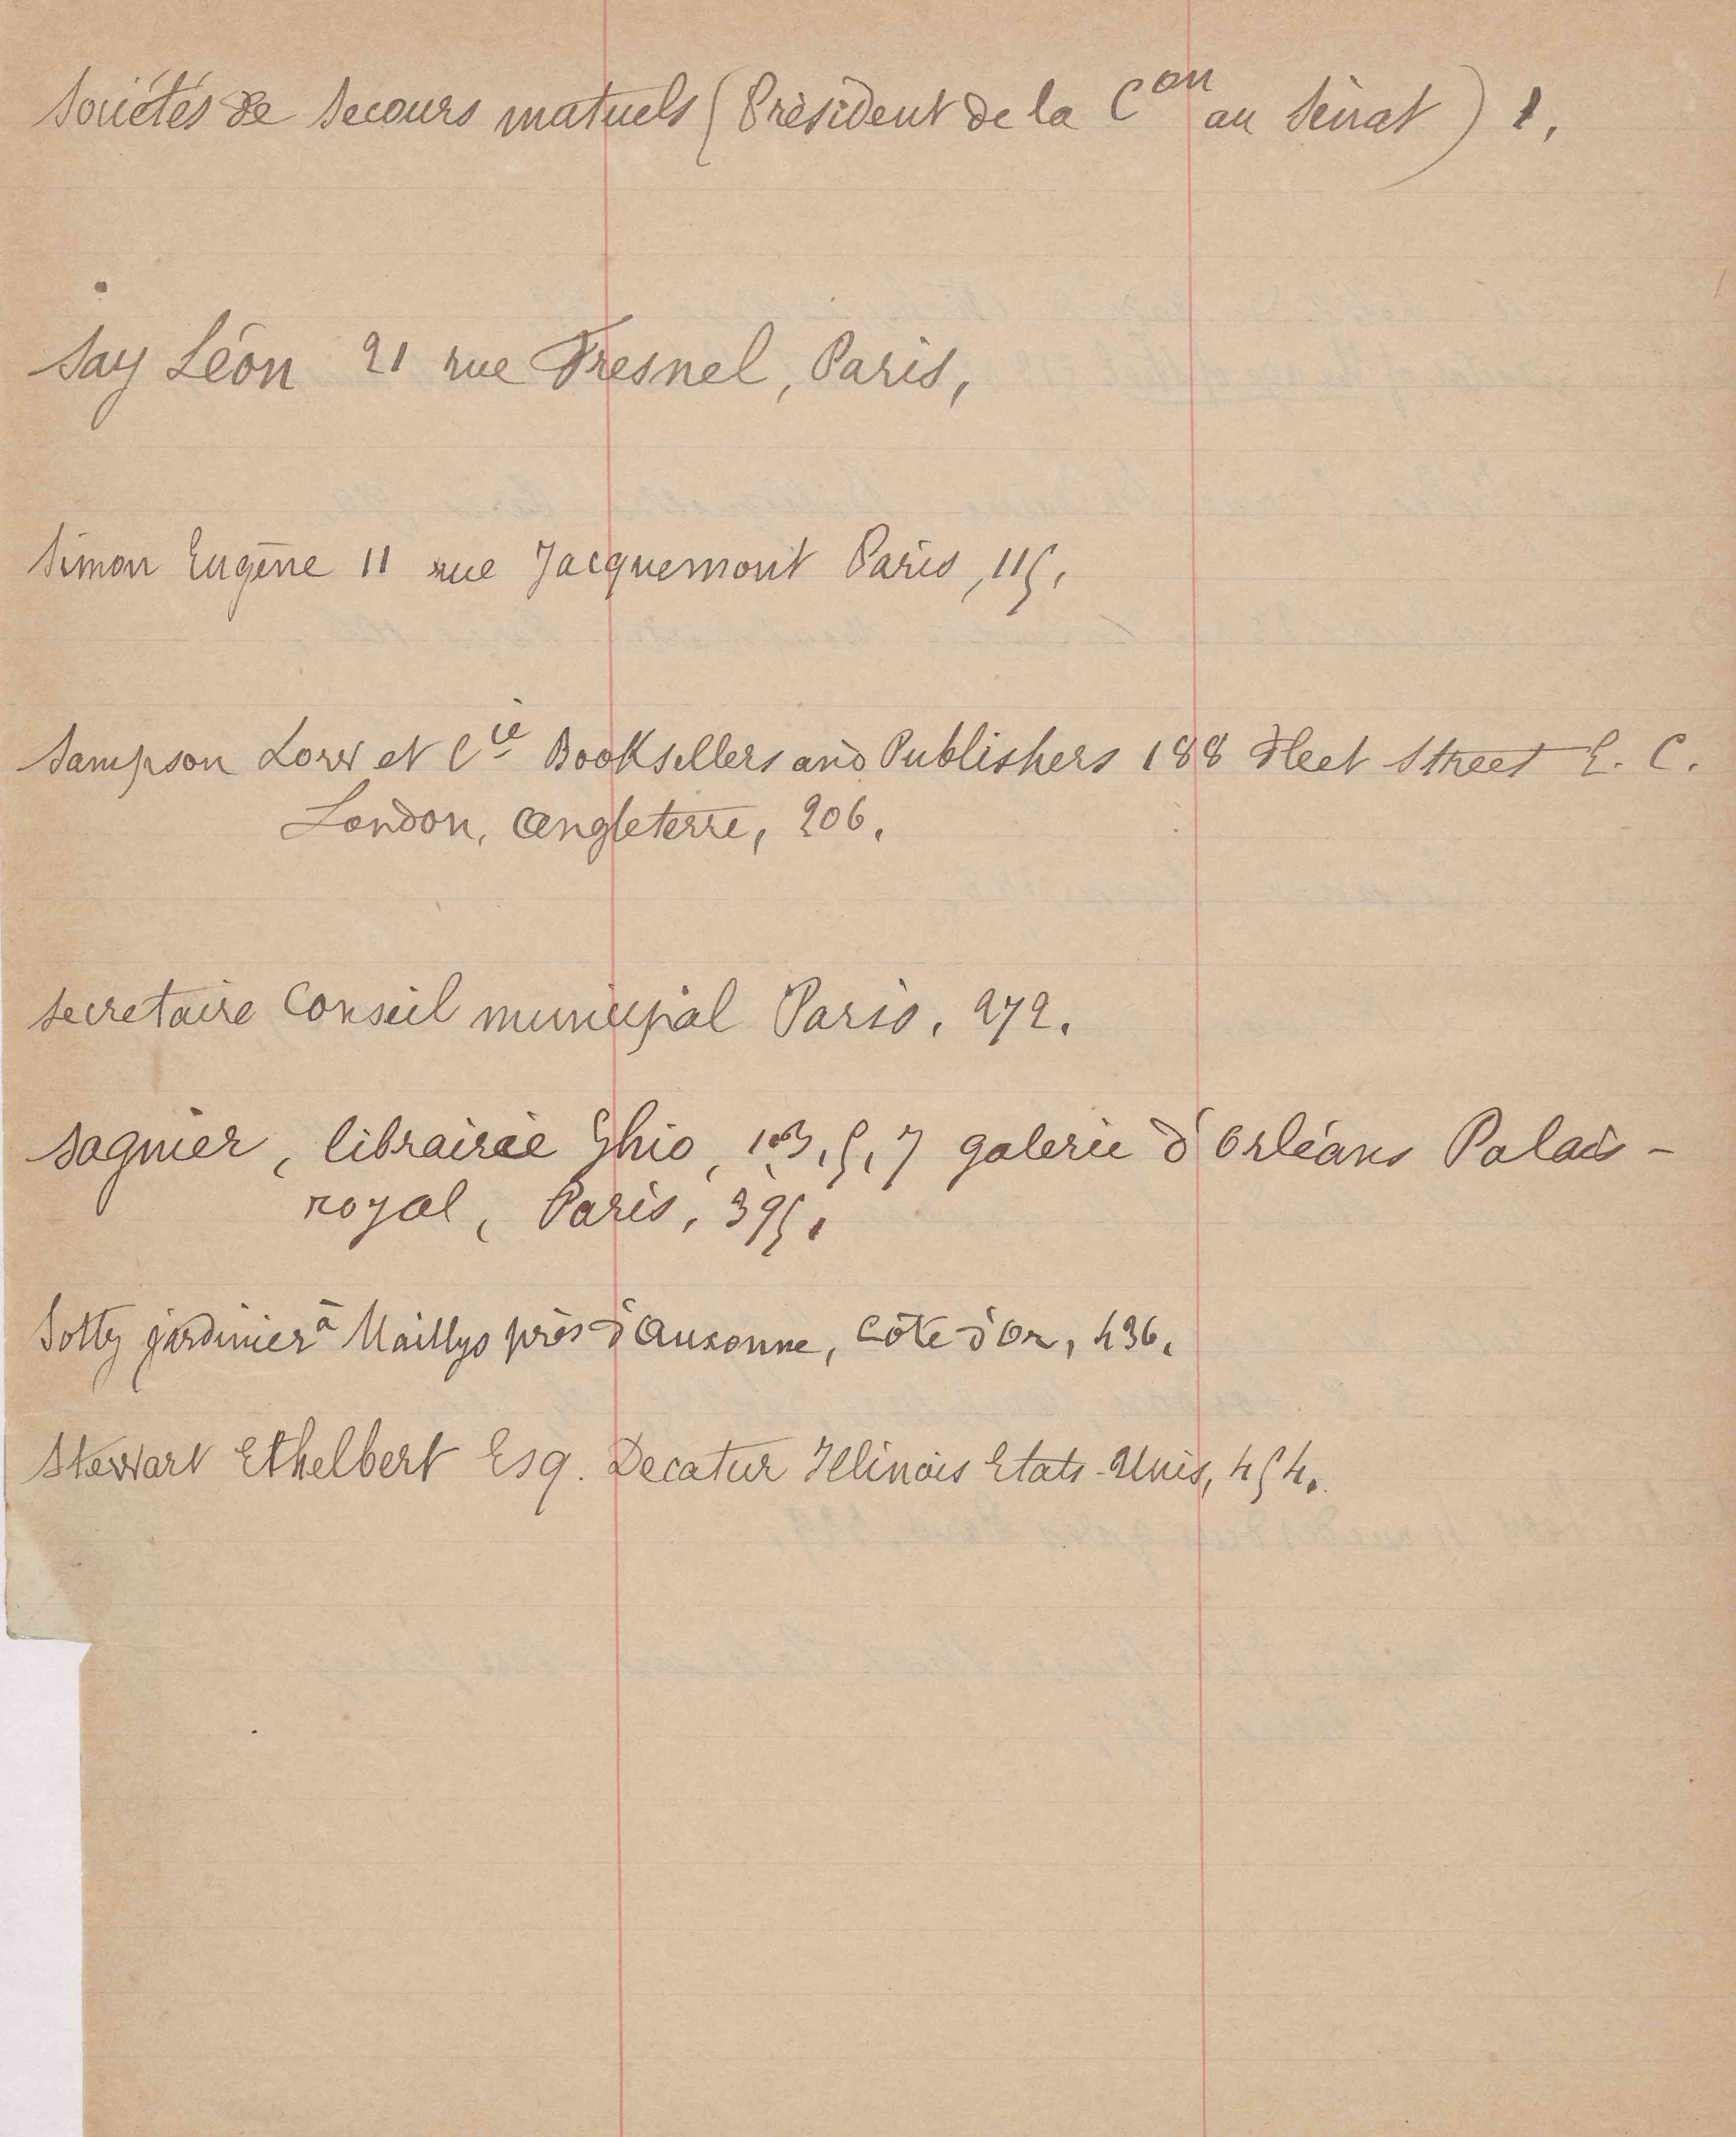 Sociétés de Secours mutuels (Président de la Con au Sénat) 1,
Say Léon 21 rue Fresnel, Paris,
Simon Eugène 11 rue Jacquemont Paris, 115,
Sampson Low et Cie Booksellers and Publishers 188 Fleet Street E. C.
London, Angleterre, 206.
Secretaire Conseil municipal Paris, 272.
Sagnier, librairie Ghio, 1,3,5,7 galerie d'Orléans Palais-
royal, Paris, 395,
Sotty jardinier à Maillys près d'Auxonne, Côte d'Or, 436.
Stewart Ethelbert Esq. Decatur Illinois Etats-Unis, 454.